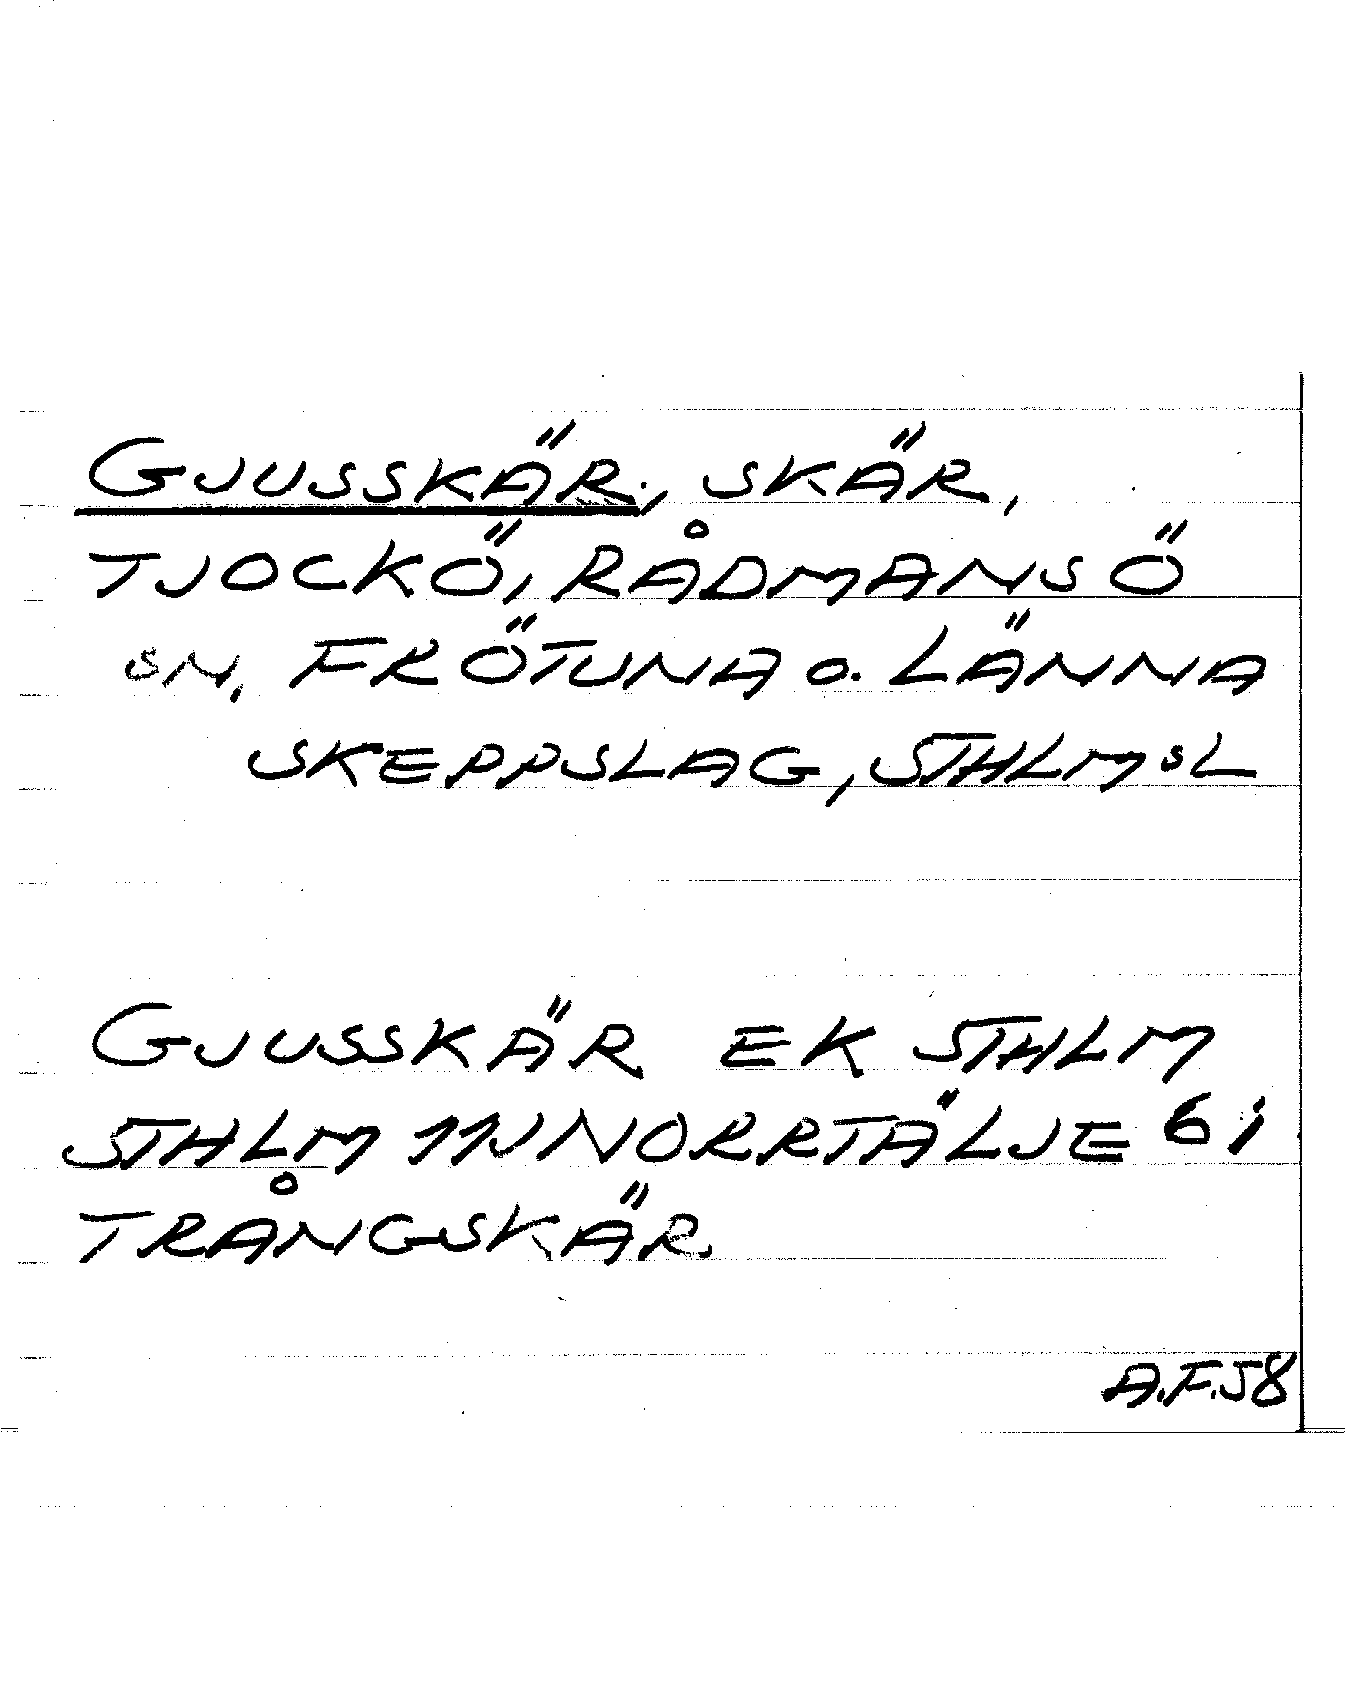 GJUSSKÄR, SKÄR,
TJOCKÖ, RÅDMANSÖ
SN, FRÖTUNA o. LÄNNA
SKEPPSLAG, STHLMSL
GJUSSKÄR EK STHLM
STHLM 11J NORRTÄLJE 6i
TRÅNGSKÄR
A.F.58